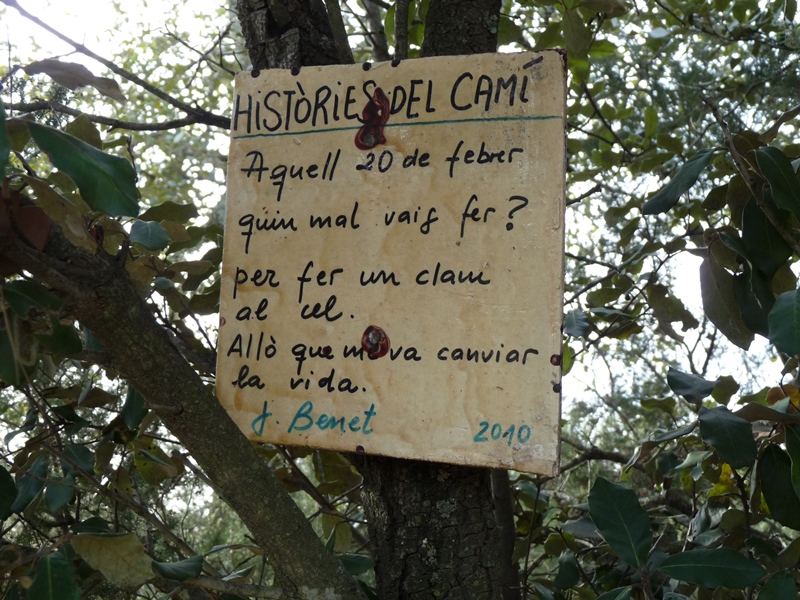 HISTÒRIES DEL CAMÍ
Aquell 20 de febrer
quin mal vaig fer?
per fer un clam
al cel.
Allò que me va canviar
la vida.
J. Benet 2010